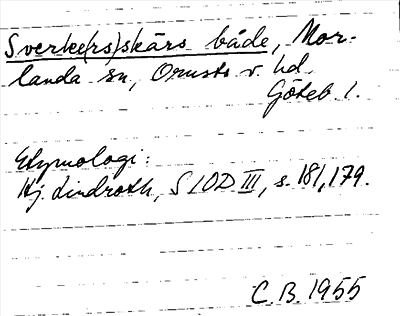 Sverke(rs)skärs både, Mor-
landa sn, Orusts v. hd.
Göteb l.
Etymologi:
Hj. Lindroth, SIOD III, s. 181, 179.
C. B. 1955